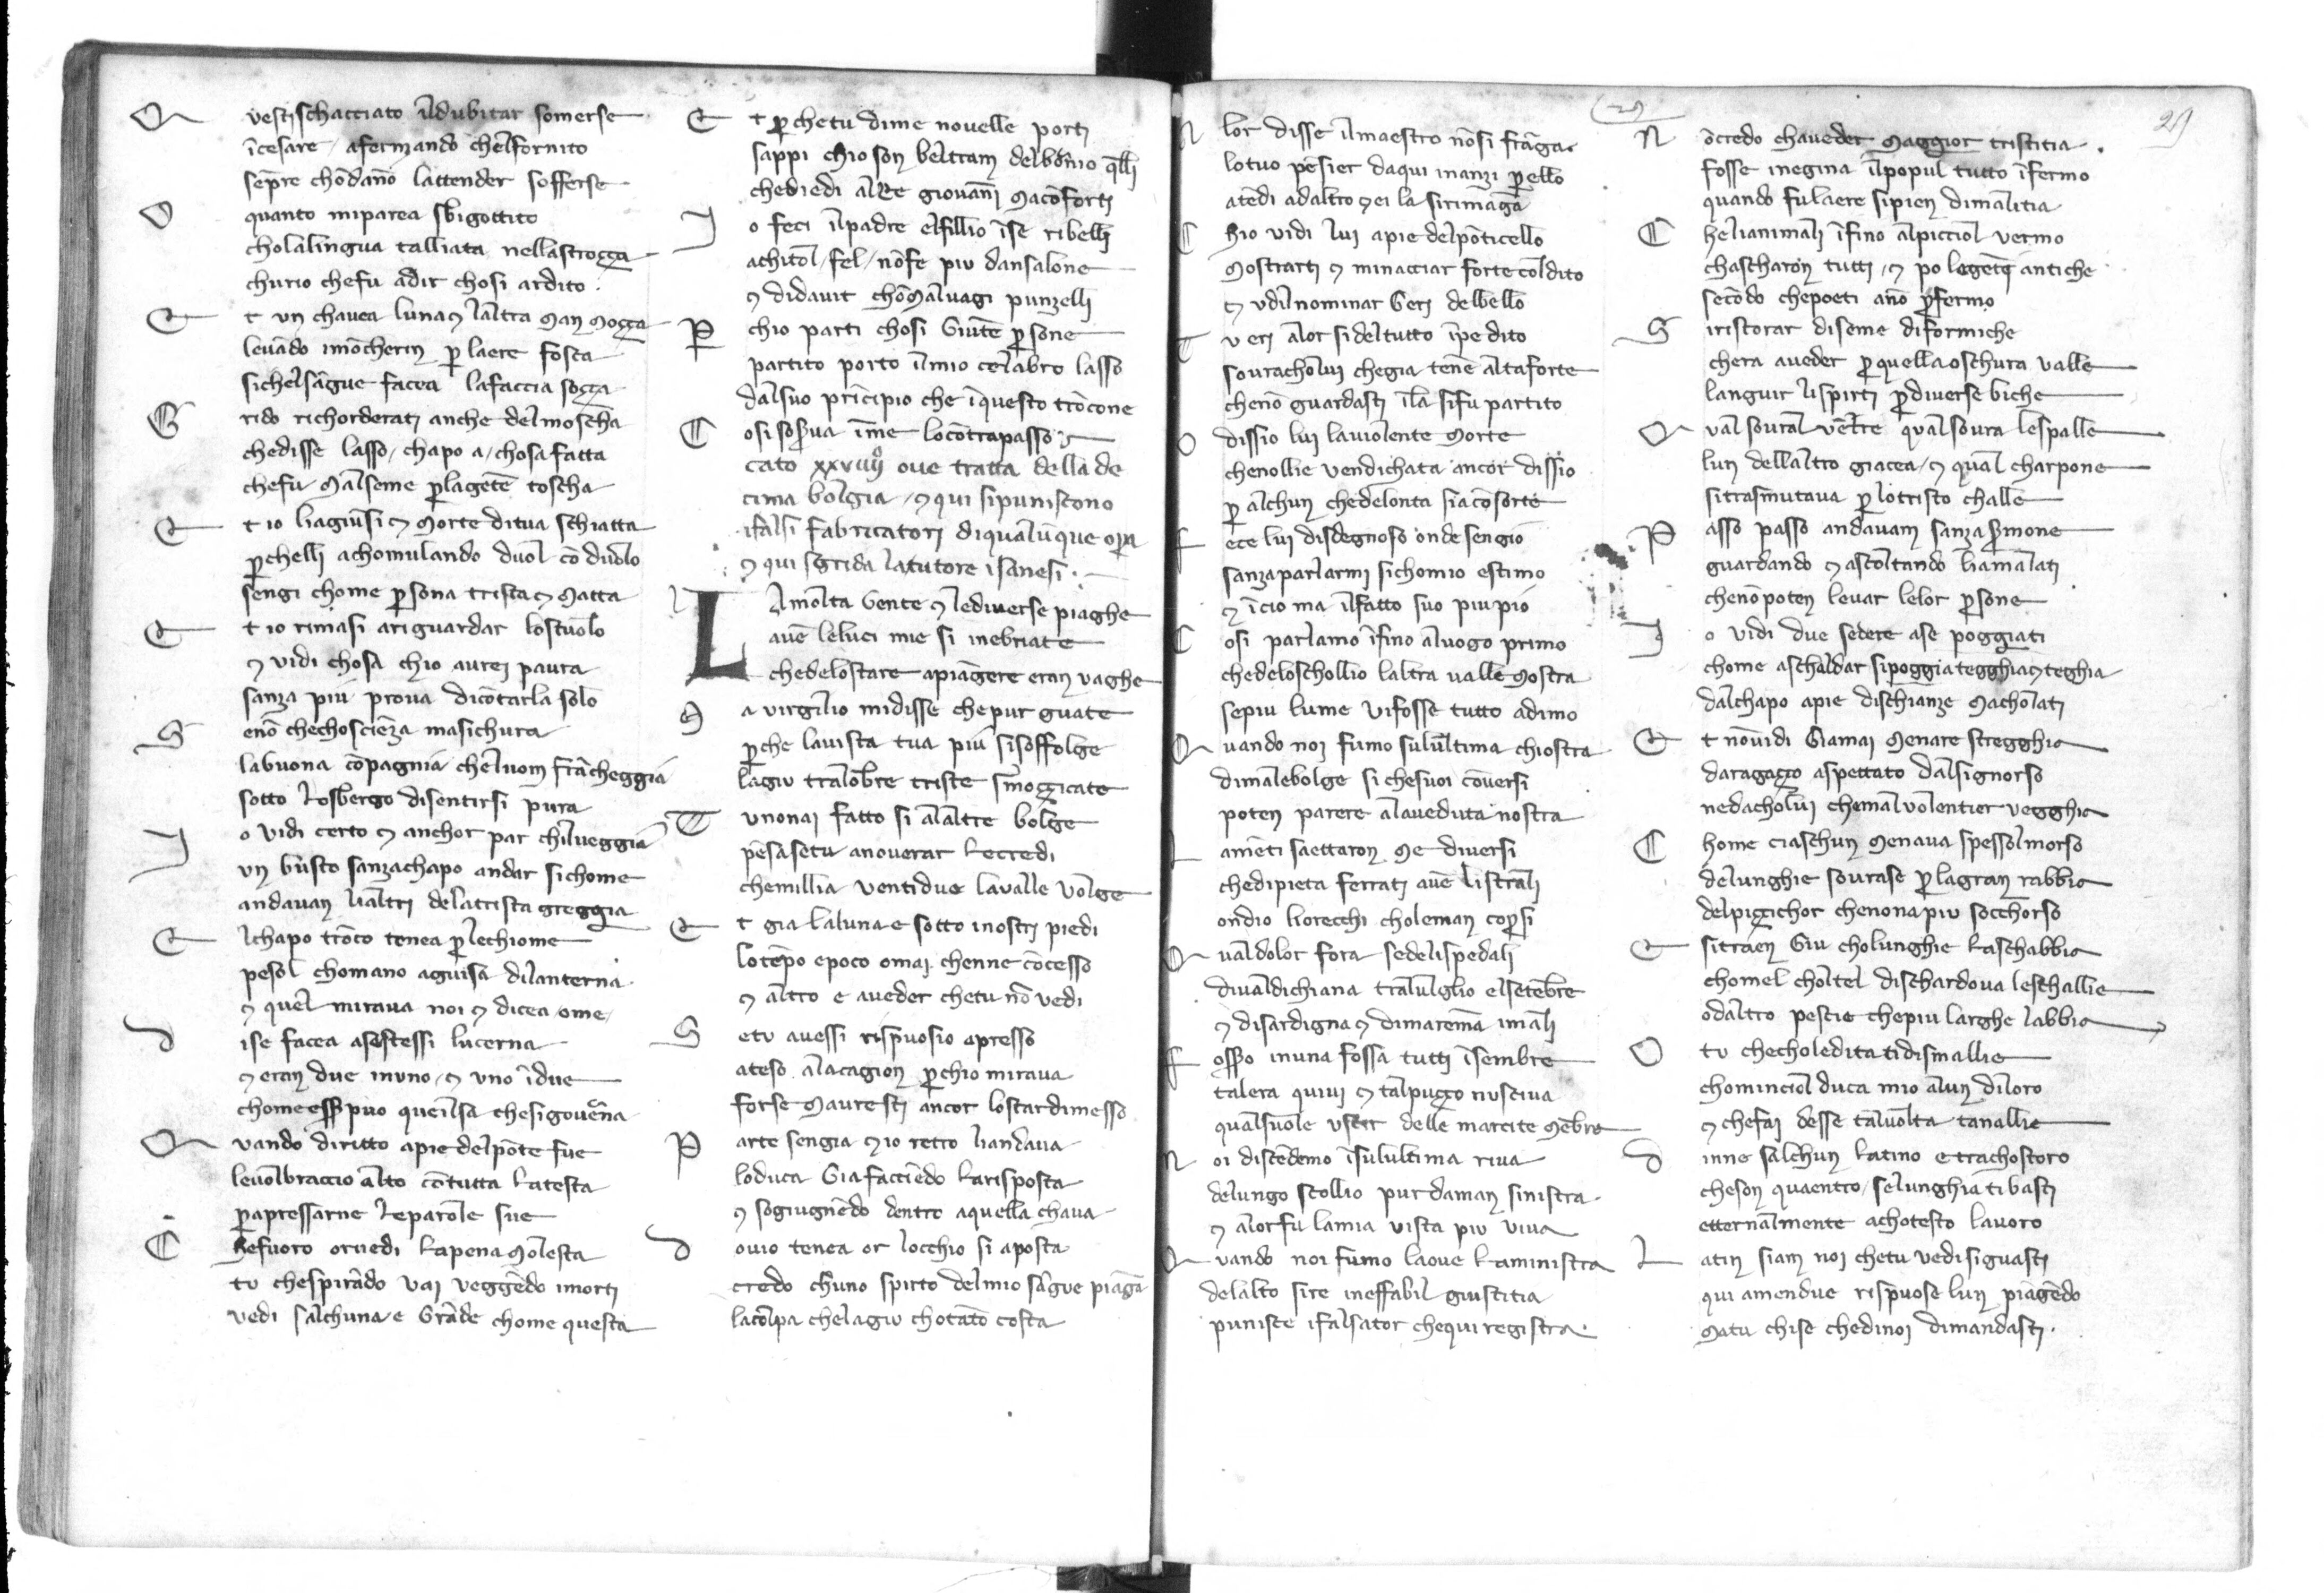 Q vesti schacciato il dubitar somerse
ĩcesare / afermando chel fornito
sepre chõdanõ lattender sofferse
O quanto miparea sbigottito
cholalingua talliata nellastroçça
churio chefu adir chosi ardito .
E t un chavea luna ⁊ laltra man moçça
levãdo imõcherin ꝑ laere fosca
sichel sãgue facea lafaccia soçça
G rido richorderati anche delmoscha
chedisse lasso / chapo a / chosa fatta
chefu malseme ꝑlagẽte toscha
E t io liagiũsi ⁊ morte ditua schiatta
ꝑchelli achomulando duol cõ duolo
sengi chome ꝑsona trista ⁊ matta
E t io rimasi ariguardar lostuolo
⁊ vidi chosa chio aurei paura
sanza piu prova dicõtarla solo
S enõ chechosciẽza masichura
labuona cõpagnia chelvom frãcheggia
sotto losbergo disentirsi pura
I o vidi certo ⁊ anchor par chilveggia
vn busto sanzachapo andar sichome
andavan lialtri delatrista greggia
E lchapo trõco tenea ꝑlechiome
pesol chomano aguisa dilanterna
⁊ quel mirava noi ⁊ dicea ome
D ise facea asestessi lucerna
⁊ eran due inuno / ⁊ uno ĩdue
chomeesser puo queilsa chesigovẽrna
Q vando diritto apie delpõte fue
levolbraccio alto cõtutta latesta
ꝑapressarne leparole sue
C hefuoro oruedi lapena molesta
tu chespirãdo vai veggẽdo imorti
vedi salchuna e grãde chome questa
E t ꝑchetu dime novelle porti
sappi chio son beltram delbornio q̃lli
chediedi alre giovãni maõforti
I o feci ilpadre elfillio ĩse ribelli
achitol / fel / nõfe piu dansalone
⁊ didavit chõmalvagi punzelli
P chio parti chosi giũte ꝑsone
partito porto ilmio celabro lasso
dalsuo prĩcipio che ĩquesto trõcone
C osi soserva ĩme locõtrapasso
cãto xxviiijº ove tratta della de
cima bolgia / ⁊ qui sipuniscono
ifalsi fabricatori diqualũque opa
⁊ qui sgrida lautore isanesi .
L Almolta gente ⁊ lediverse piaghe
aveã leluci mie si inebriate
chedelostare apiãgere eran vaghe
M a virgilio midisse chepur guate
ꝑche lavista tua piu sisoffolge
lagiu tralõbre triste smoççicate
T u nonai fatto si alaltre bolge
pẽsasetu anoverar lecredi
chemillia ventidue lavalle volge
E t gia laluna e sotto inostri piedi
lotẽpo epoco omai chenne cõcesso
⁊ altro e aveder chetu nõ vedi
S etu avessi rispuosio apresso
ateso alacagion ꝑchio mirava
forse mauresti ancor lostardimesso
P arte sengia ⁊ io retro liandava
loduca gia faccẽdo larisposta
⁊ sogiugnẽdo dentro aquella chava
D ovio tenea or locchio si aposta
credo chuno spirto delmio sãgue piãga
lacolpa chelagiu chotãto costa
A lor disse ilmaestro nõsi frãga
lotuo pẽsier daqui inanzi ꝑello
atẽdi adaltro ⁊ ei la sirimãga
C hio vidi lui apie delpõticello
mostrarti ⁊ minacciar forte coldito
⁊ vdilnominar geri delbello
T u eri alor sideltutto ĩpedito
sovracholui chegia tenẽ altaforte
chenõ guardasti ila sifu partito
O dissio lui laviolente morte
chenollie vendichata ancor dissio
ꝑ alchun chedelonta siacõsorte
F ece lui disdegnoso onde sengio
sanzaparlarmi sichomio estimo
⁊ ĩcio ma ilfatto suo piupio
C osi parlamo ĩfino aluogo primo
chedeloschollio laltra valle mostra
sepiu lume vifosse tutto adimo
Q vando noi fumo sulultima chiostra
dimalebolge si chesuoi cõversi
poten parere alaveduta nostra
L amẽti saettaron me diversi
chedipieta ferrati avẽ listrali
ondio liorecchi choleman copersi
Q valdolor fora sedelispedali
divaldichiana tralulglio elsetẽbre
⁊ disardigna ⁊ dimarema imali
F osser inuna fossa tutti ĩsembre
talera quivi ⁊ talpuçço nusciva
qualsuole uscir delle marcite mẽbre
N oi discẽdemo ĩsulultima riva
delungo scollio purdaman sinistra
⁊ alorfu lamia vista piu viva
Q vando noi fumo laove laministra
delalto sire ineffabil giustitia
punisce ifalsator chequi registra
29
N õcredo chaveder maggior tristitia .
fosse inegina ilpopul tutto ĩfermo
quando fulaere sipien dimalitia
C helianimali ĩfino alpicciol vermo
chascharon tutti / ⁊ po legẽti antiche
secõdo chepoeti anõ ꝑfermo
S iristorar diseme diformiche
chera aveder ꝑquella oschura valle
languir lispirti ꝑdiverse biche
Q val sovral vẽtre qual soura lespalle
lun dellaltro giacea / ⁊ qual charpone
sitrasmutava ꝑlotristo challe
P asso passo andavam sanzasermone
guardando ⁊ ascoltando liamalati
chenõpoten levar lelor ꝑsone
I o vidi due sedere ase poggiati
chome aschaldar sipoggiategghia ⁊ teghia
dalchapo apie dischianze macholati
E t nõvidi giamai menare stregghia
daragaçço aspettato dalsignorso
nedacholui chemalvolentier vegghia
C home ciaschun menava spessolmorso
delunghie sovrase ꝑlagran rabbia
delpiççichor chenonapiu socchorso
E sitraen giu cholunghie laschabbia
chomel choltel dischardova leschallie
odaltro pescie chepiu larghe labbia
O tu checholedita tidismallie
chominciol duca mio alun diloro
⁊ chefai desse talvolta tanallie
D inne salchun latino etrachostoro
cheson quaentro / selunghia tibasti
etternalmente achotesto lavoro
L atin siam noi chetu vedisiguasti
qui amendue rispuose lun piãgẽdo
matu chise chedinoi dimandasti .